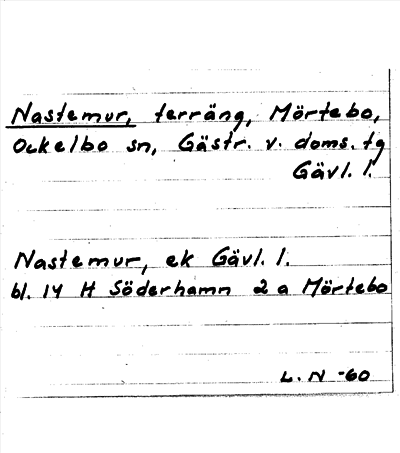 Nastemur, terräng, Mörtebo,
Ockelbo sn, Gästr. v. doms. tg
Gävl. l.
Nastemur, ek Gävl. l.
bl. 14 H Söderhamn 2 a Mörtebo
L. N -60